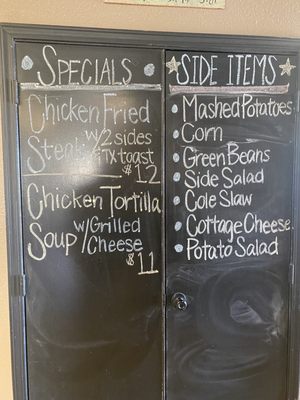 SPECIALS
Chicken Fried
Steak w/2 sides
+TX toast
$12
Chicken Tortilla
Soup w/Grilled
Cheese
$11
SIDE ITEMS
Mashed Potatoes
Corn
Green Beans
Side Salad
Cole Slaw
Cottage Cheese
Potato Salad